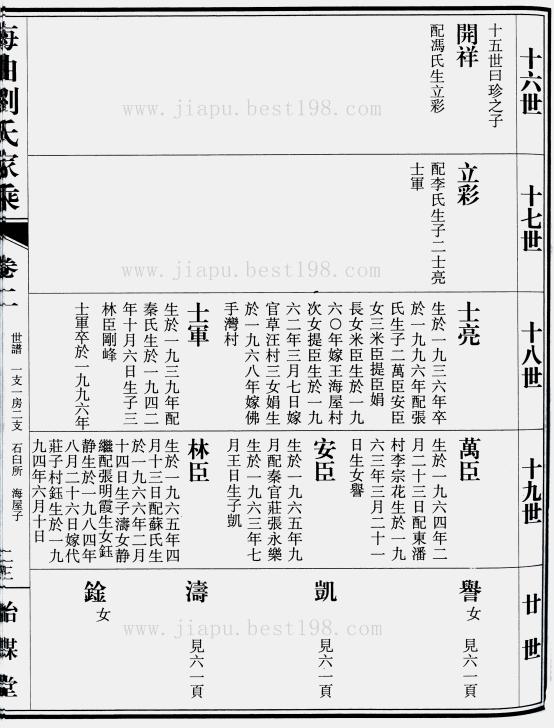 十六世
十五世曰珍之子
開祥
配馮氏生立彩
十七世
立彩
配李氏生子二士亮
士軍
十八世
士亮
生於一九三六年卒
於一九九六年配張
氏生子二萬臣安臣
女三米臣提臣娟
長女米臣生於一九
六〇年嫁王海屋村
次女提臣生於一九
六二年三月七日嫁
官草汪村三女娟生
於一九六八年嫁佛
手灣村
士軍
生於一九三九年配
秦氏生於一九四二
年十月六日生子三
林臣剛峰
士軍卒於一九九六年
十九世
萬臣
生於一九六四年二
月二十三日配東潘
村李宗花生於一九
六三年三月二十一
日生女譽
安臣
生於一九六五年九
月配秦官莊張永樂
生於一九六三年七
月王日生子凱
林臣
生於一九六五年四
月十三日配蘇氏生
於一九六六年二月
十四日生子濤女静
繼配張明霞生女鈺
静生於一九八四年
八月二十六日嫁代
莊子村鈺生於一九
九四年六月十日
廿世
譽 女 見六一頁
凱 見六一頁
濤 見六一頁
銓 女
海曲劉氏家乘
卷二
世譜 一支一房二支 石臼所 海屋子
二三
怡謀堂
www.jiapu.best198.com
www.jiapu.best198.com
www.jiapu.best198.com